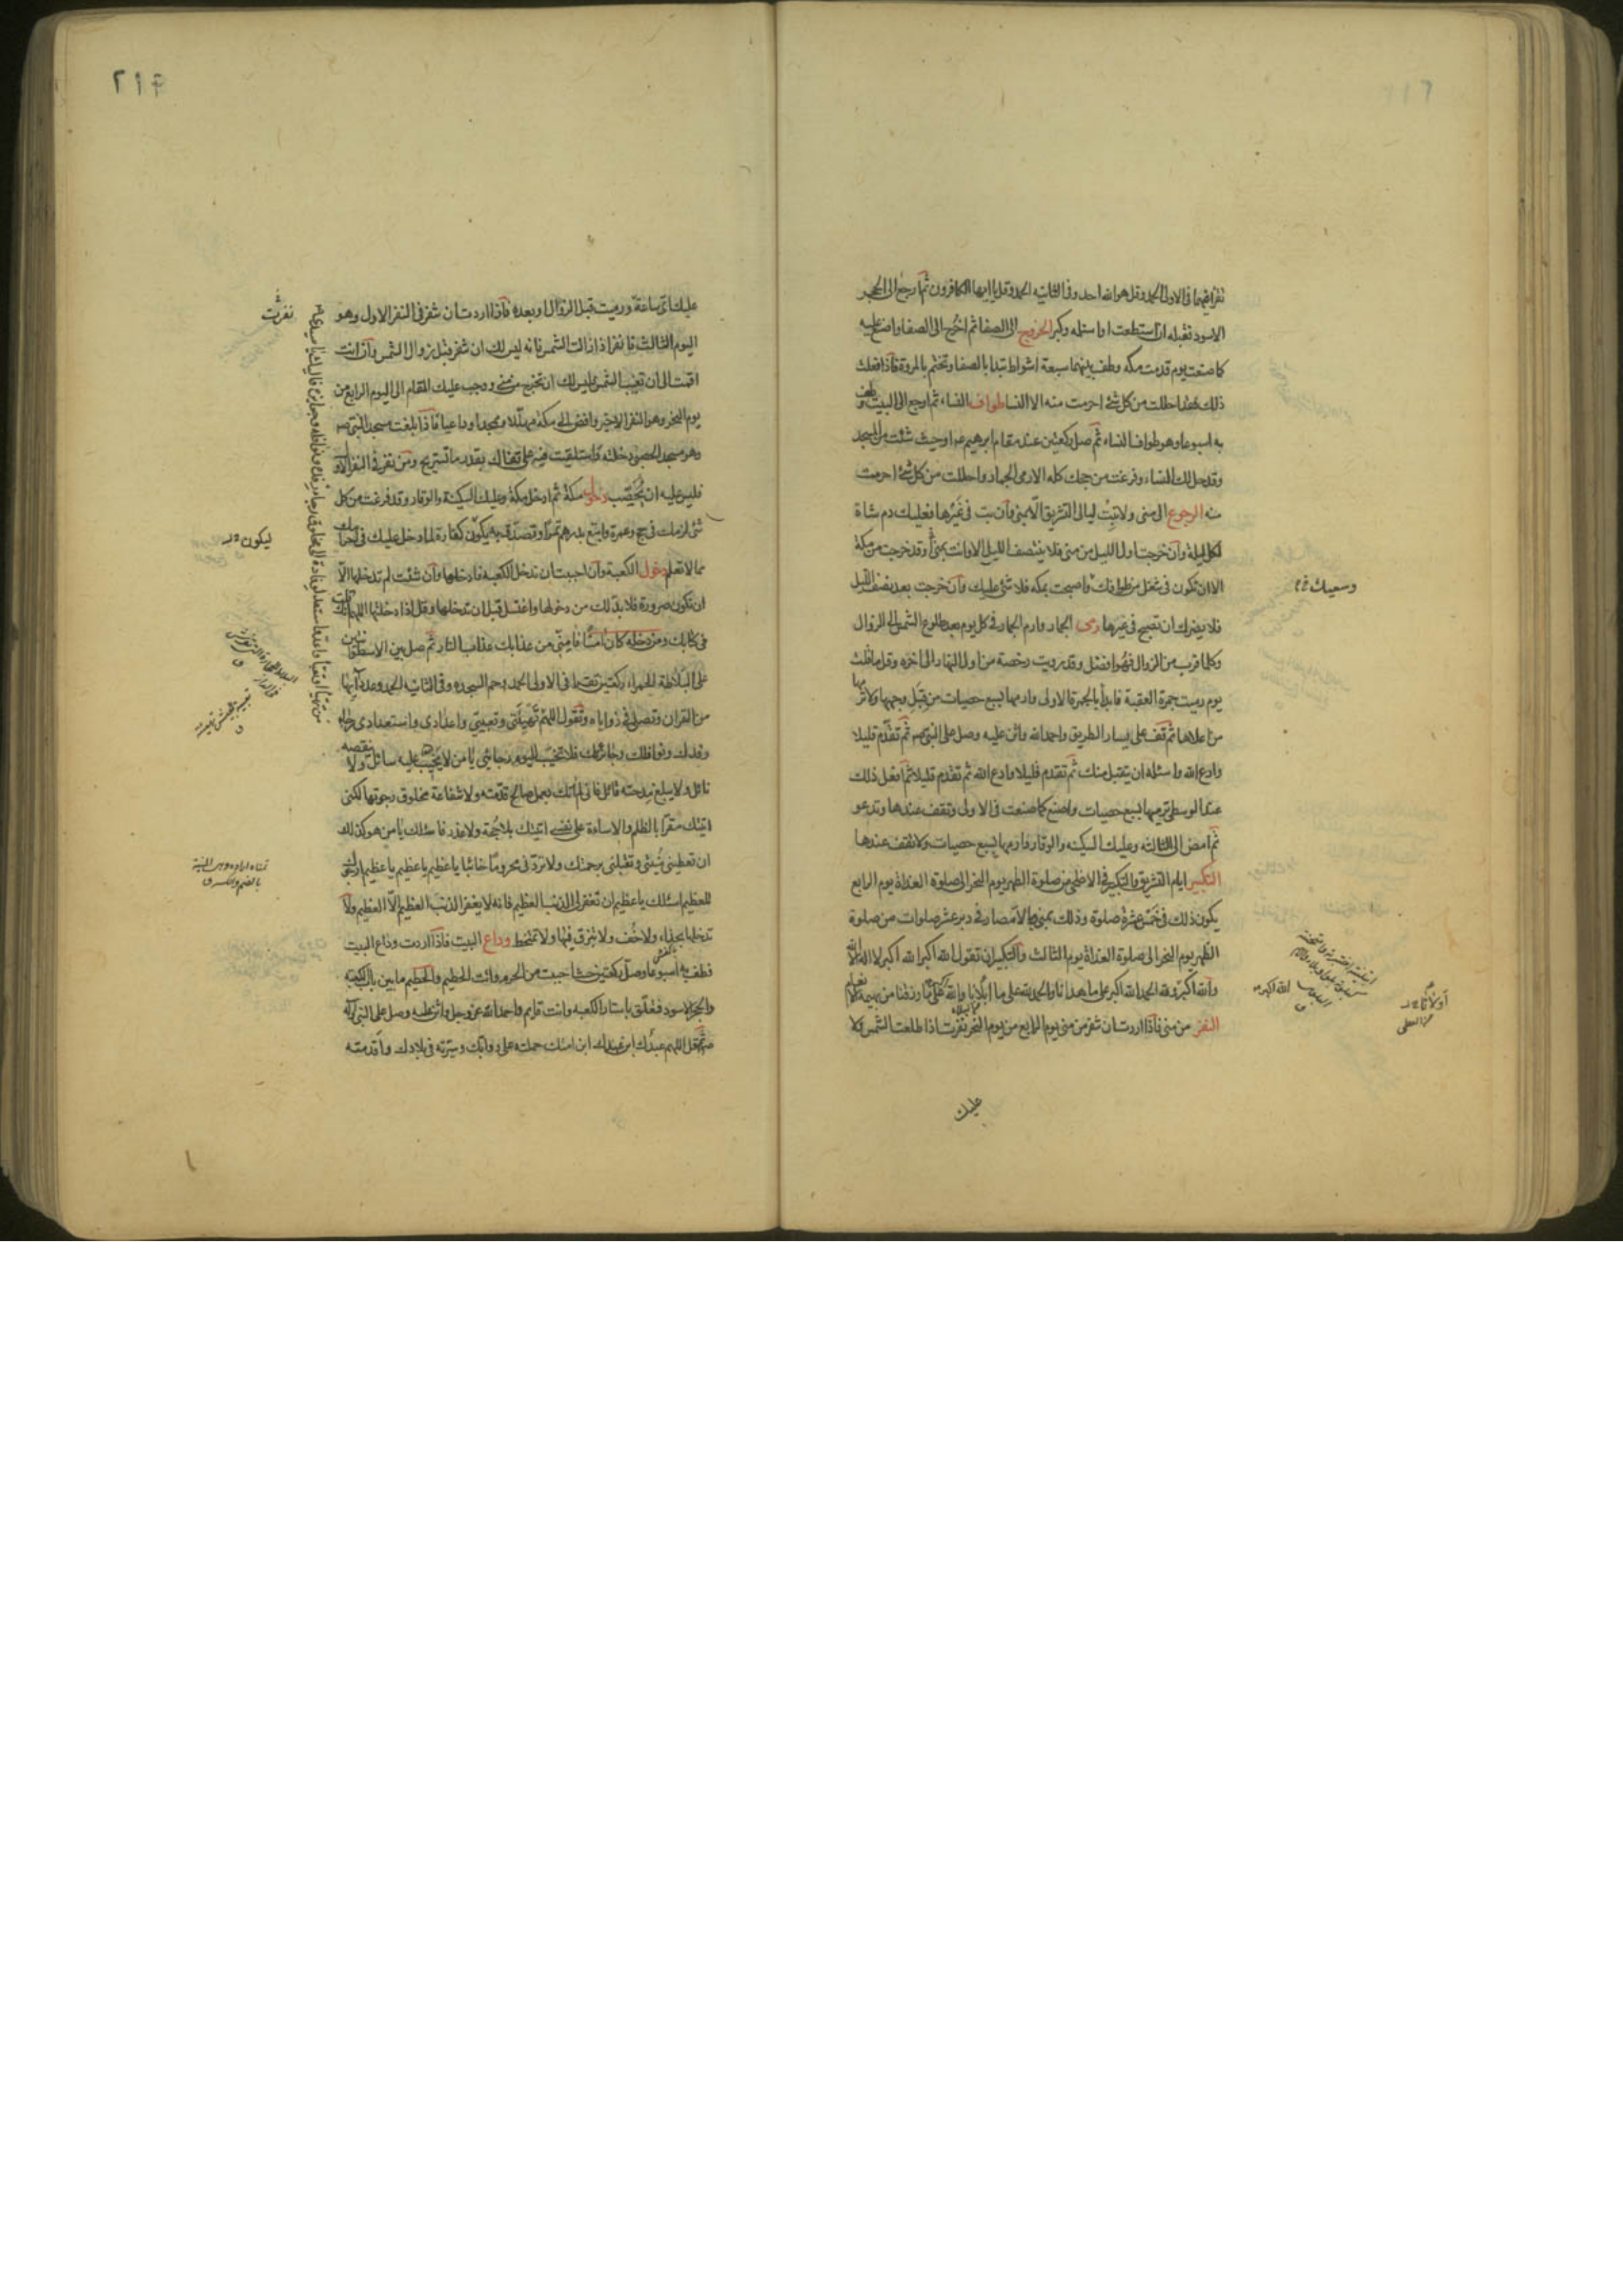 تقرا فيهما في الاولى الحمد وقل هو الله احد وفي الثانيه الحمد وقل يا ايها الكافرون ثم ارجع الى الحجر
الاسود فقبله ان استطعت او استلمه وكبر الخروج الى الصفا ثم اخرج الى الصفا واصنع عليه
كما صنعت يوم قدمت مكه وطف بينهما سبعة اشواط تبدا بالصفا وتختم بالمروة فاذا فعلت
ذلك فقد احللت من كل شئ احرمت منه الا النسا طواف النساء ثم ارجع الى البيت وطف
به اسبوعا وهو طواف النساء ثم صل ركعتين عند مقام ابرهيم ع او حيث شئت من المسجد
وقد حل لك النساء وفرغت من حجك كله الا رمى الجمار واحللت من كل شئ احرمت
منه الرجوع الى منى ولا تبت ليالى التشريق الا بمنى وان بت في غيرها فعليك دم شاة
لكل ليلة وان خرجت اول الليل من منى فلا ينتصف الليل الا وانت بمنى او قد خرجت من مكة
الا ان تكون في شغل من طوافك واصبحت بمكه فلا شئ عليك وان خرجت بعد نصف الليل
فلا يضرك ان تصبح في غيرها رمى الجمار وارم الجمار في كل يوم بعد طلوع الشمس الى الزوال
وكلما قرب من الزوال فهو افضل وقد رويت رخصة من اول النهار الى اخره وقل ما قلت
يوم رميت جمرة العقبة فابدأ بالجمرة الاولى وارمها بسبع حصيات من قبل وجهها ولا ترمها
من اعلاها ثم تقف على يسار الطريق واحمد الله واثن عليه وصل على النبي ص ثم تقدم قليلا
وادع الله واسئله ان يتقبل منك ثم تقدم قليلا وادع الله ثم تقدم قليلا ثم افعل ذلك
عند الوسطى ترميها بسبع حصيات واصنع كما صنعت في الاولى وتقف عندها وتدعو
ثم امض الى الثالثه وعليك السكينه والوقار وارمها بسبع حصيات ولا تقف عندها
التكبير ايام التشريق والتكبير في الاضحى من صلوة الظهر يوم النحر الى صلوة الغداة يوم الرابع
يكون ذلك في خمس عشرة صلوة وذلك بمنى وبالامصار في دبر عشر صلوات من صلوة
الظهر يوم النحر الى صلوة الغداة يوم الثالث والتكبير ان تقول الله اكبر الله اكبر لا اله الا الله
والله اكبر ولله الحمد الله اكبر على ما هدانا والحمد لله على ما ابلانا والله اكبر على ما رزقنا من بهيمة الانعام
النفر من منى فاذا اردت ان تنفر من منى يوم الرابع من يوم النحر نفرت اذا طلعت الشمس ولا
عليك
وسعيك
الله اكبر
أولانا
٢١٤
عليك اى ساعة ورميت قبل الزوال او بعده فاذا اردت ان تنفر في النفر الاول وهو
اليوم الثالث فانفر اذا زالت الشمس فانه ليس لك ان تنفر قبل زوال الشمس وان انت
اقمت الى ان تغيب الشمس فليس لك ان تخرج من منى ووجب عليك المقام الى اليوم الرابع من
يوم النحر وهو النفر الاخير وافض الى مكة مهللا وممجدا وداعيا فاذا بلغت مسجد النبي ص
وهو مسجد الحصبا دخلته واستلقيت فيه على قفاك بقدر ما تستريح ومن نفر في النفر الاول
فليس عليه ان يحصّب دخول مكة ثم ادخل مكة وعليك السكينة والوقار وقد فرغت من كل
شئ لزمك في حج وعمرة وابتع بدرهم تمرا وتصدق به يكون كفارة لما دخل عليك في احرامك
مما لا تعلم دخول الكعبة وان احببت ان تدخل الكعبه فادخلها وان شئت لم تدخلها الا
ان تكون صرورة فلا بد لك من دخولها واغتسل قبل ان تدخلها وقل اذا دخلتها اللهم انك قلت
في كتابك ومن دخله كان امنا فامنى من عذابك عذاب النار ثم صل بين الاسطوانتين
على البلاطة الحمراء ركعتين تقرا في الاولى الحمد وحم السجده وفي الثانيه الحمد وعدد آيها
من القران وتصلى في زواياه وتقول اللهم تهيئتى وتعبيتى واعدادى واستعدادى رجاء
رفدك ونوافلك وجائزتك فلا تخيب اليوم رجائى يا من لا يخيب عليه سائل ولا ينقصه
نائل ولا يبلغ مدحته قائل فانى لم اتك بعمل صالح قدمته ولا شفاعة مخلوق رجوتها لكنى
اتيتك مقرا بالظلم والاساءة على نفسى اتيتك بلا حجة ولا عذر فاسئلك يا من هو كذلك
ان تعطينى منيتى وتقبلنى برحمتك ولا تردنى محروما خائبا يا عظيم يا عظيم يا عظيم ارجوك
للعظيم اسئلك يا عظيم ان تغفر لى الذنب العظيم فانه لا يغفر الذنب العظيم الا العظيم ولا
تدخلها بحذاء ولا خف ولا تبزق فيها ولا تمتخط وداع البيت فاذا اردت وداع البيت
فطف به اسبوعا وصل ركعتين حيث احببت من الحرم وائت الحطيم والحطيم ما بين باب الكعبه
والحجر الاسود فتعلق باستار الكعبه وانت قايم واحمد الله عز وجل واثن عليه وصل على النبي وآله
ص ثم قل اللهم عبدك ابن عبدك ابن امتك حملته على دوابك وسيرته في بلادك واقدمته
نفرت
ليكون